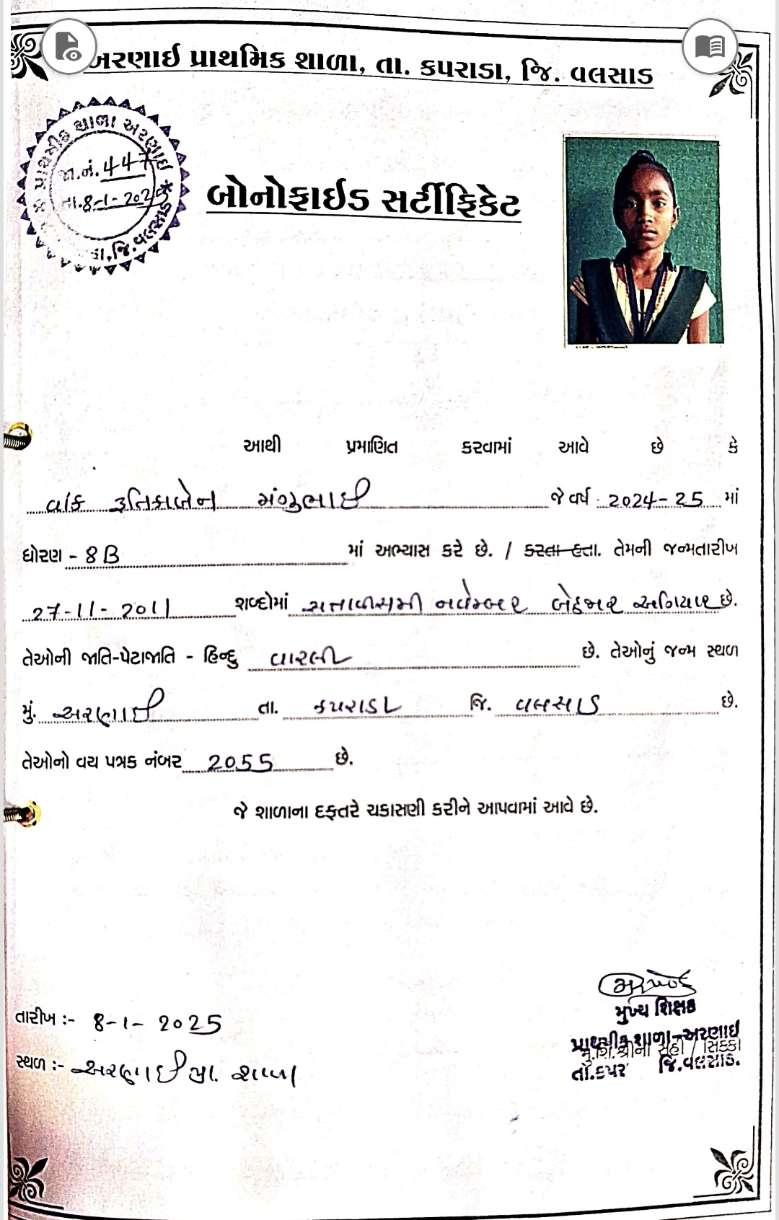 અરણાઈ પ્રાથમિક શાળા, તા. કપરાડા, જિ. વલસાડ
પ્રાથમીક શાળા અરણાઈ
જા.નં. 447
તા. 8-1-2025
જિ. વલસાડ
બોનોફાઈડ સર્ટીફિકેટ
આથી પ્રમાણિત કરવામાં આવે છે કે
મંગુભાઈ જે વર્ષ 2024-25 માં
ધોરણ - 8B માં અભ્યાસ કરે છે. / કરતા હતા. તેમની જન્મતારીખ
27-11-2011 શબ્દોમાં સત્તાવીસમી નવેમ્બર બેહજાર અગિયાર છે.
તેઓની જાતિ-પેટાજાતિ - હિન્દુ વારલી છે. તેઓનું જન્મ સ્થળ
મું. અરણાઈ તા. કપરાડા જિ. વલસાડ છે.
તેઓનો વય પત્રક નંબર 2055 છે.
જે શાળાના દફતરે ચકાસણી કરીને આપવામાં આવે છે.
તારીખ :- 8-1-2025
સ્થળ :- અરણાઈ પ્રા. શાળા
મુખ્ય શિક્ષક
પ્રાથમીક શાળા-અરણાઈ
મુ.શિ.શ્રીની સહી / સિક્કો
તા.કપરા જિ.વલસાડ.